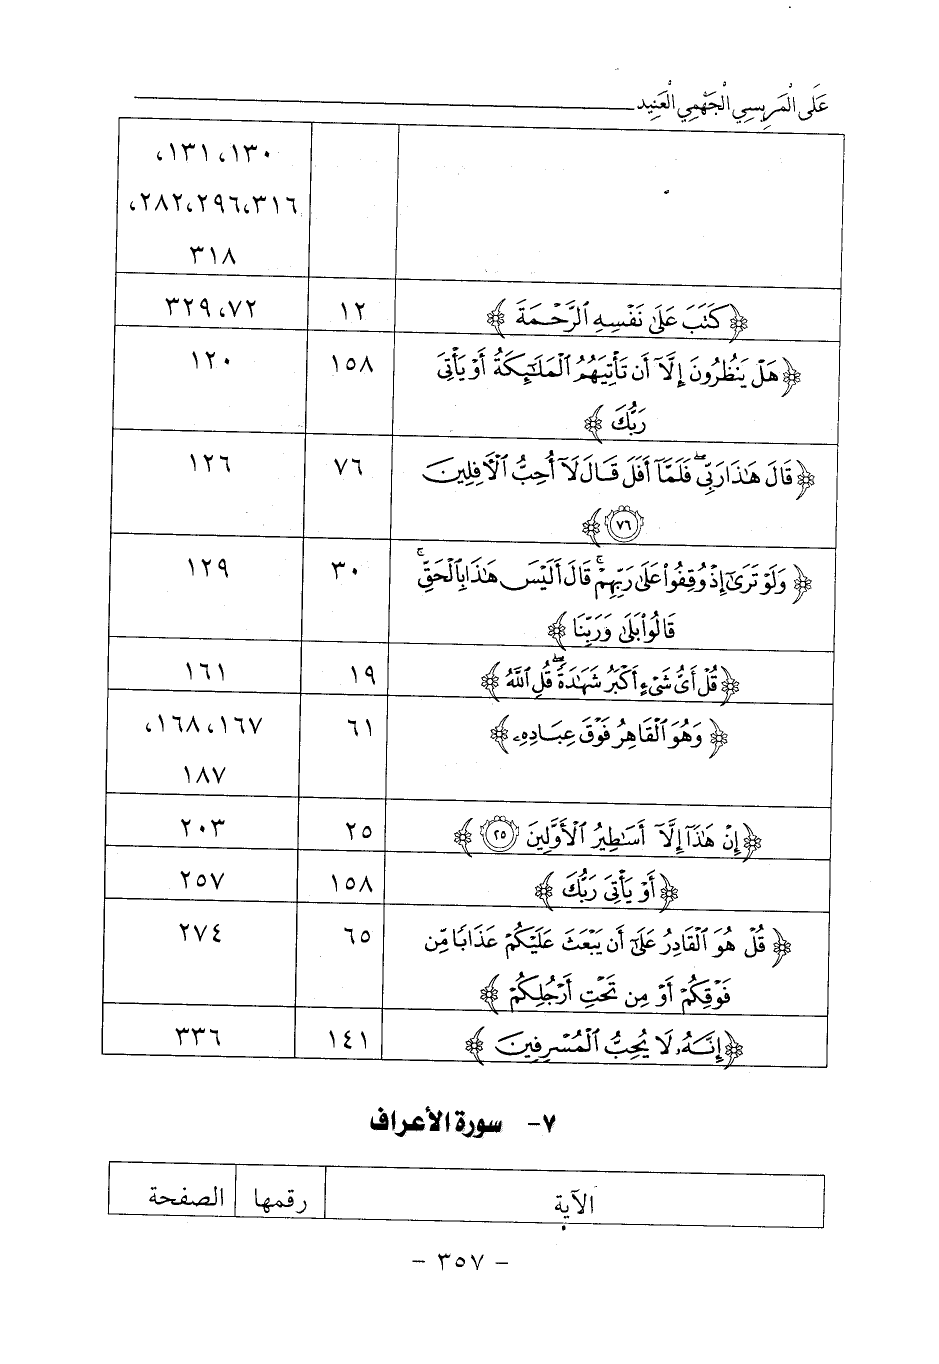 عَلَى الْمَرِيسِي الْجَهْمِي الْعَنِيد
١٣٠، ١٣١،
٢٨٢،٢٩٦،٣١٦،
٣١٨
﴿كَتَبَ عَلَىٰ نَفْسِهِ ٱلرَّحْمَةَ﴾ ١٢ ٣٢٩،٧٢
﴿هَلْ يَنظُرُونَ إِلَّآ أَن تَأْتِيَهُمُ ٱلْمَلَٰٓئِكَةُ أَوْ يَأْتِىَ ١٥٨ ١٢٠
رَبُّكَ﴾
﴿قَالَ هَٰذَا رَبِّى ۖ فَلَمَّآ أَفَلَ قَالَ لَآ أُحِبُّ ٱلْأَفِلِينَ ٧٦ ١٢٦
٧٦﴾
﴿وَلَوْ تَرَىٰٓ إِذْ وُقِفُوا۟ عَلَىٰ رَبِّهِمْ ۚ قَالَ أَلَيْسَ هَٰذَا بِٱلْحَقِّ ۚ ٣٠ ١٢٩
قَالُوا۟ بَلَىٰ وَرَبِّنَا﴾
﴿قُلْ أَىُّ شَىْءٍ أَكْبَرُ شَهَٰدَةً ۖ قُلِ ٱللَّهُ﴾ ١٩ ١٦١
﴿وَهُوَ ٱلْقَاهِرُ فَوْقَ عِبَادِهِۦ﴾ ٦١ ١٦٧، ١٦٨،
١٨٧
﴿إِنْ هَٰذَآ إِلَّآ أَسَٰطِيرُ ٱلْأَوَّلِينَ ٢٥﴾ ٢٥ ٢٠٣
﴿أَوْ يَأْتِىَ رَبُّكَ﴾ ١٥٨ ٢٥٧
﴿قُلْ هُوَ ٱلْقَادِرُ عَلَىٰٓ أَن يَبْعَثَ عَلَيْكُمْ عَذَابًا مِّن ٦٥ ٢٧٤
فَوْقِكُمْ أَوْ مِن تَحْتِ أَرْجُلِكُمْ﴾
﴿إِنَّهُۥ لَا يُحِبُّ ٱلْمُسْرِفِينَ﴾ ١٤١ ٣٣٦
٧- سورة الأعراف
الآية رقمها الصفحة
- ٣٥٧ -